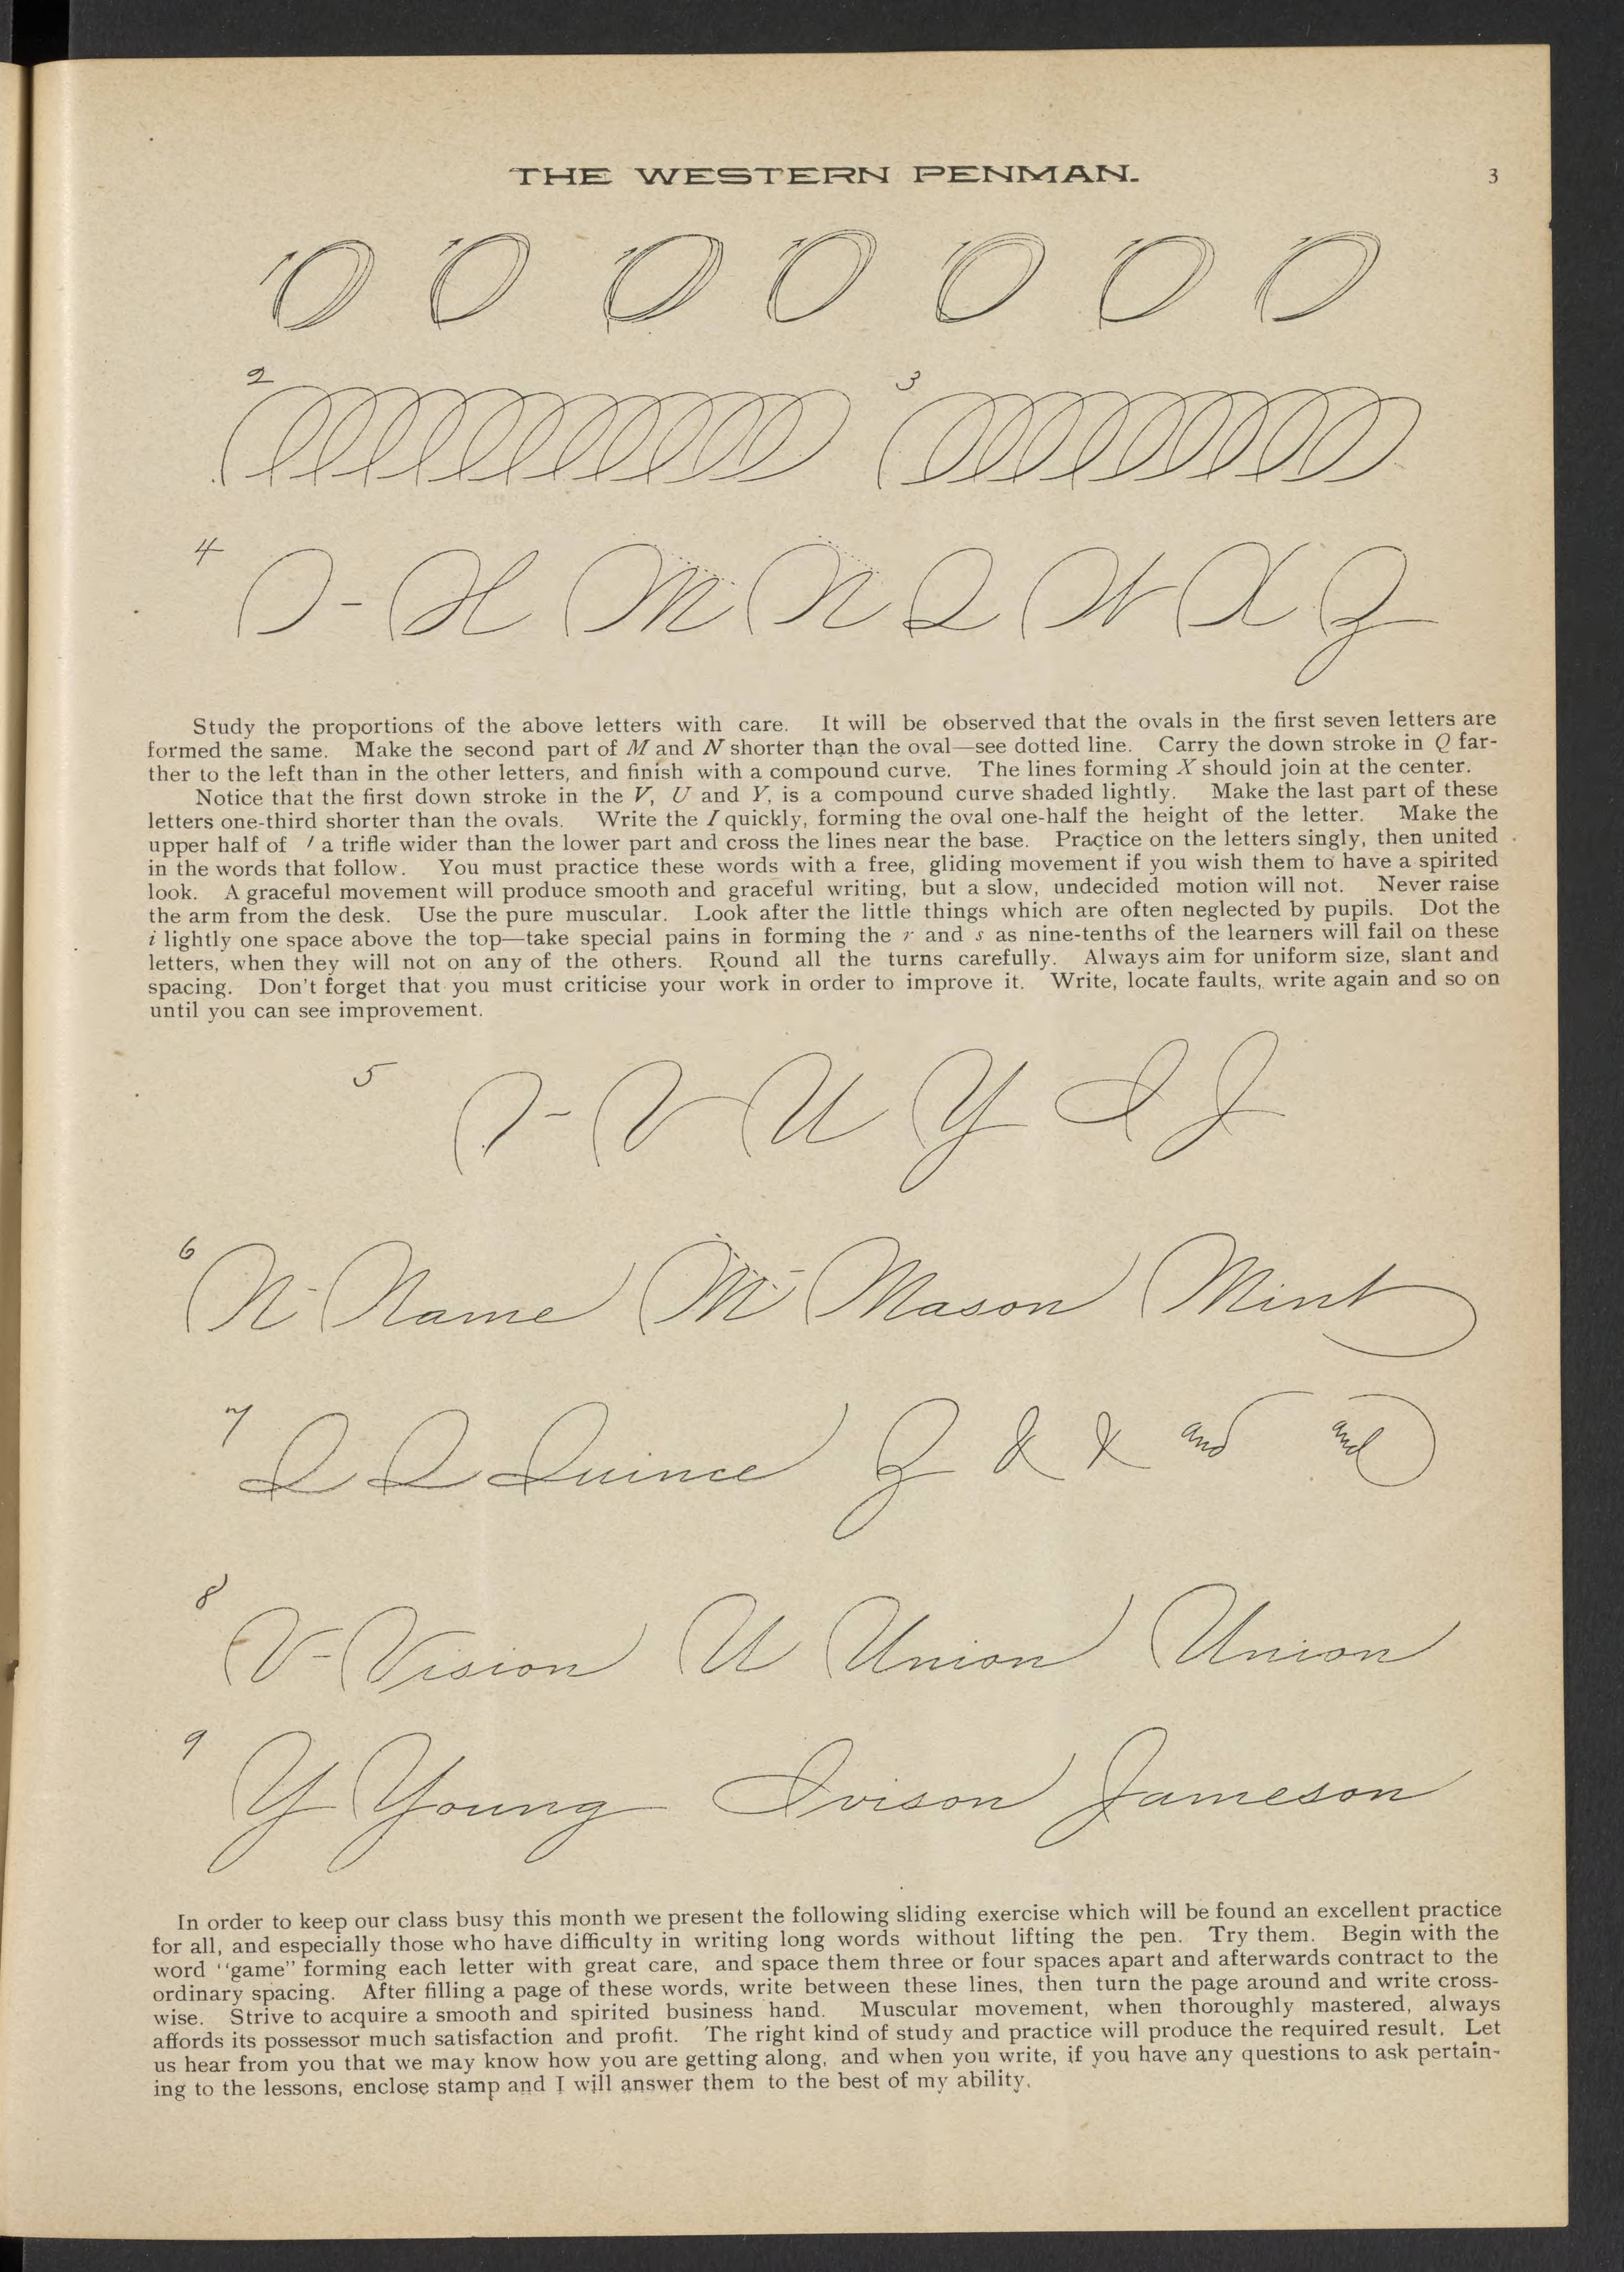 THE WESTERN PENMAN. 3
2 3
4 H M N Q W X Z
Study the proportions of the above letters with care. It will be observed that the ovals in the first seven letters are
formed the same. Make the second part of M and N shorter than the oval—see dotted line. Carry the down stroke in Q far-
ther to the left than in the other letters, and finish with a compound curve. The lines forming X should join at the center.
Notice that the first down stroke in the V, U and Y, is a compound curve shaded lightly. Make the last part of these
letters one-third shorter than the ovals. Write the I quickly, forming the oval one-half the height of the letter. Make the
upper half of a trifle wider than the lower part and cross the lines near the base. Practice on the letters singly, then united
in the words that follow. You must practice these words with a free, gliding movement if you wish them to have a spirited
look. A graceful movement will produce smooth and graceful writing, but a slow, undecided motion will not. Never raise
the arm from the desk. Use the pure muscular. Look after the little things which are often neglected by pupils. Dot the
i lightly one space above the top—take special pains in forming the r and s as nine-tenths of the learners will fail on these
letters, when they will not on any of the others. Round all the turns carefully. Always aim for uniform size, slant and
spacing. Don't forget that you must criticise your work in order to improve it. Write, locate faults, write again and so on
until you can see improvement.
5 V U Y I J
6 N Name M Mason Mint
7 Q Q Quince Z & & and and
8 V Vision U Union Union
9 Y Young Ivison Jameson
In order to keep our class busy this month we present the following sliding exercise which will be found an excellent practice
for all, and especially those who have difficulty in writing long words without lifting the pen. Try them. Begin with the
word "game" forming each letter with great care, and space them three or four spaces apart and afterwards contract to the
ordinary spacing. After filling a page of these words, write between these lines, then turn the page around and write cross-
wise. Strive to acquire a smooth and spirited business hand. Muscular movement, when thoroughly mastered, always
affords its possessor much satisfaction and profit. The right kind of study and practice will produce the required result. Let
us hear from you that we may know how you are getting along, and when you write, if you have any questions to ask pertain-
ing to the lessons, enclose stamp and I will answer them to the best of my ability.